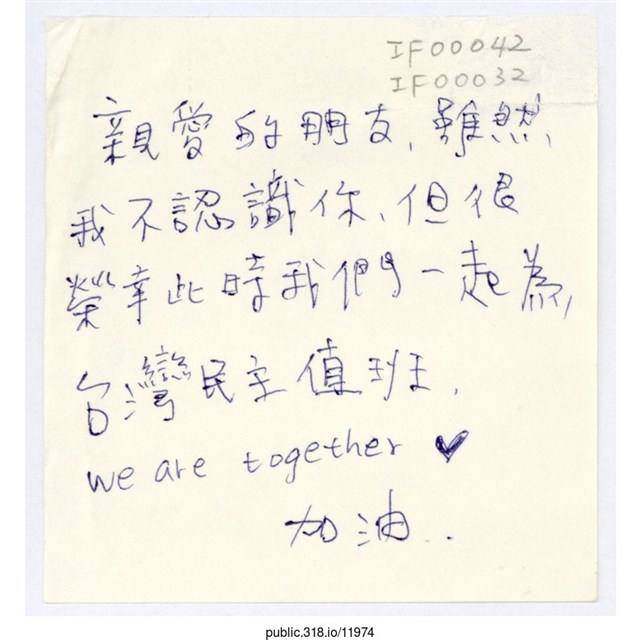 IF00042
IF00032
親愛的朋友,雖然
我不認識你,但很
榮幸此時我們一起為
台灣民主值班,
we are together ♥
加油..
public.318.io/11974